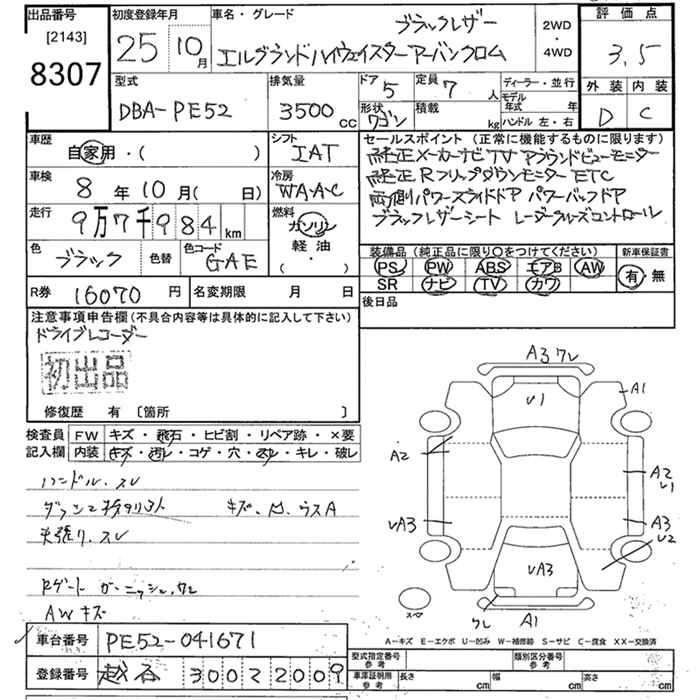 出品番号 初度登録年月 車名・グレード ブラックレザー 2WD・4WD 評価点
[2143] 25年 10月 エルグランドハイウェイスターアーバンクロム 3.5
8307 外装 内装
型式 排気量 ドア 5 定員 7人 ディーラー・並行 D C
DBA-PE52 3500cc 形状 ワゴン 積載 kg モデル年式 年 ハンドル 左・右
車歴 シフト セールスポイント(正常に機能するものに限ります)
自家用・( ) IAT 純正メーカーナビTV アラウンドビューモニター
車検 冷房 純正Rフリップダウンモニター ETC
8年10月(日) WAAC 両側パワースライドドア パワーバックドア
走行 9万7千984km 燃料 ガソリン ブラックレザーシート レーダークルーズコントロール
軽油
(・)
色 ブラック 色替 色コード GAE
装備品(純正品に限り○をつけてください) 新車保証書
PS PW ABS エアB AW 有・無
SR ナビ TV カワ
R券 16070円 名変期限 月 日 後日品
注意事項申告欄(不具合内容等は具体的に記入して下さい)
ドライブレコーダー
初出品
修復歴 有 [箇所 ]
検査員記入欄 FW キズ・飛石・ヒビ割・リペア跡・×要
内装 キズ・汚レ・コゲ・穴・スレ・キレ・破レ
ハンドル、スレ
キズ、凹、ウスA
天張リ、スレ
Rゲート ガーニッシュ、ワレ
AWキズ
A3ワレ
U1
A1
A2
A2
U1
UA3
A3
U2
UA3
ワレ
A1
スペア
A−キズ E−エクボ U−凹み W−補修跡 S−サビ C−腐食 XX−交換済
車台番号 PE52-041671 型式指定番号 参考 類別区分番号 参考
登録番号 越谷 300 2009 車庫証明用 参考 長さ cm 幅 cm 高さ cm